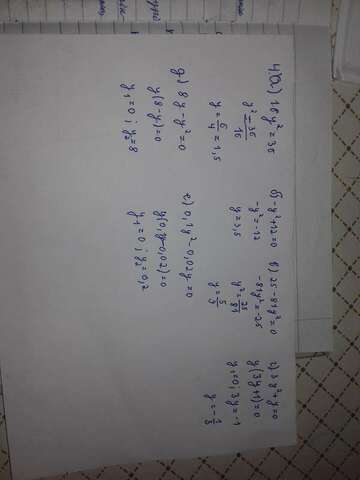 4 а) 16y²=36
y²=36/16
y=6/4=1,5
б) -y²+12=0
-y²=-12
y=3,5
в) 25-81y²=0
-81y²=-25
y²=25/81
y=5/9
г) 3y²+y=0
y(3y+1)=0
y₁=0; 3y=-1
y=-1/3
д) 8y-y²=0
y(8-y)=0
y₁=0; y₂=8
е) 0,1y²-0,02y=0
y(0,1y-0,02)=0
y₁=0; y₂=0,2